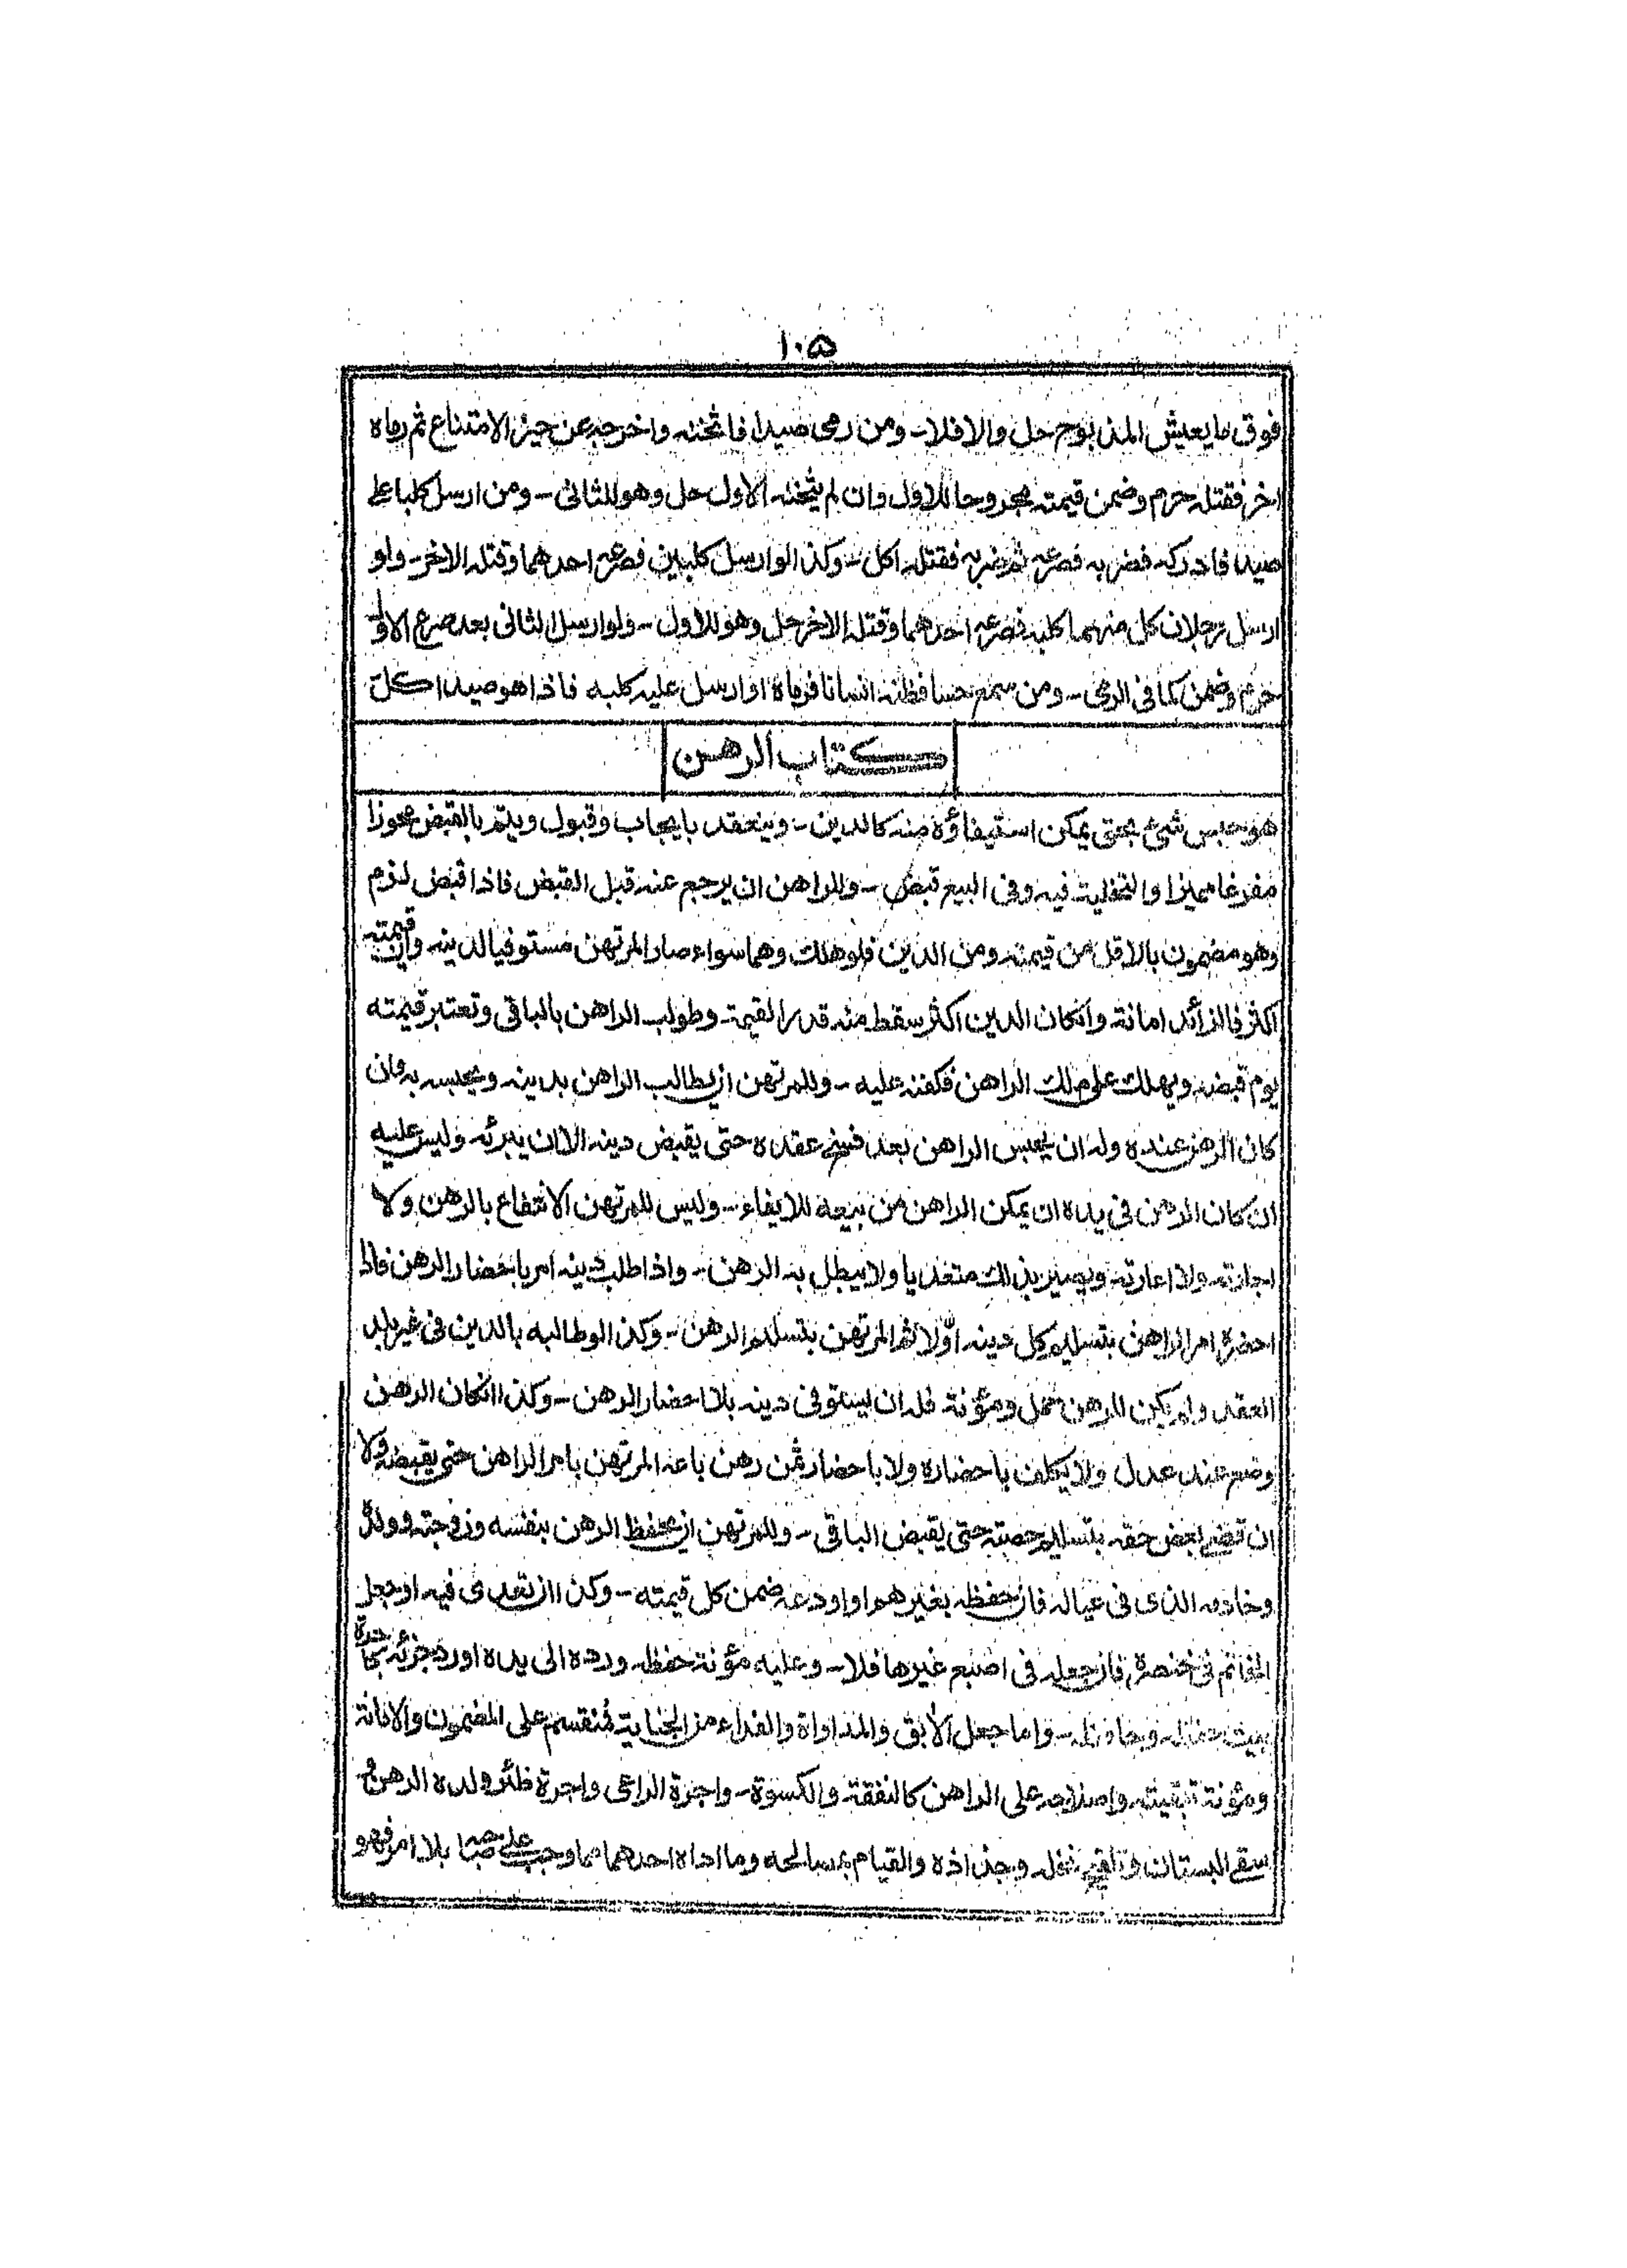 ١٠٥
فوق ما يعيش المذبوح حل والا فلا - ومن رمى صيدا فاثخنه واخرجه عن حيز الامتناع ثم رماه
اخر فقتله حرم وضمن قيمته مجروحا للاول وان لم يثخنه الاول حل وهو للثانى - ومن ارسل كلبا على
صيد فادركه فضربه فصرعه ثم ضربه فقتله اكل - وكذا لو ارسل كلبين فصرعه احدهما وقتله الاخر - ولو
ارسل رجلان كل منهما كلبه فصرعه احدهما وقتله الاخر حل وهو للاول - ولو ارسل الثانى بعد صرع الاول
حرم وضمن كما فى الرمى - ومن سمع حسا فظنه انسانا فرماه او ارسل عليه كلبه فاذا هو صيد اكل
كتاب الرهن
هو حبس شئ بحق يمكن استيفاؤه منه كالدين - وينعقد بايجاب وقبول ويتم بالقبض محوزا
مفرغا مميزا والتخلية فيه وفى البيع قبض - وللراهن ان يرجع عنه قبل القبض فاذا قبض لزم
وهو مضمون بالاقل من قيمته ومن الدين فلو هلك وهما سواء صار المرتهن مستوفيا لدينه وان قيمته
اكثر فالزائد امانة وانكان الدين اكثر سقط منه قدر القيمة وطولب الراهن بالباقى وتعتبر قيمته
يوم قبضه ويهلك على ملك الراهن فكفنه عليه - وللمرتهن ان يطالب الراهن بدينه ويحبسه به وان
كان الرهن عنده وله ان يحبس الراهن بعد فسخ عقده حتى يقبض دينه الا ان يبرئه وليس عليه
ان كان الرهن فى يده ان يمكن الراهن من بيعه للايفاء - وليس للمرتهن الانتفاع بالرهن ولا
اجارته ولا اعارته ويصير بذلك متعديا ولا يبطل به الرهن - واذا طلب دينه امر باحضار الرهن فاذا
احضره امر الراهن بتسليم كل دينه اولا ثم المرتهن بتسليم الرهن - وكذا لو طالبه بالدين فى غير بلد
العقد ولم يكن للرهن حمل ومؤنة فله ان يستوفى دينه بلا احضار الرهن - وكذا انكان الرهن
وضع عند عدل ولا يكلف باحضاره ولا باحضار ثمن رهن باعه المرتهن بامر الراهن حتى يقبضه ولا
ان قضى بعض حقه بتسليم حصته حتى يقبض الباقى - وللمرتهن ان يحفظ الرهن بنفسه وزوجته وولده
وخادمه الذى فى عياله فان حفظه بغيرهم او اودعه ضمن كل قيمته - وكذا ان تعدى فيه او جعل
الخاتم فى خنصره فان جعله فى اصبع غيرها فلا - وعليه مؤنة حفظه ورده الى يده او رد جزئه كاجرة
بيت حفظه وحافظه - واما جعل الآبق والمداواة والفداء من الجناية فمنقسم على المضمون والامانة
ومؤنة تبقيته واصلاحه على الراهن كالنفقة والكسوة - واجرة الراعى واجرة ظئر ولده الرهن و
سقى البستان وتلقيح نخله وجذاذه والقيام بمصالحه وما اداه احدهما مما وجب على صاحبه بلا امر فهو